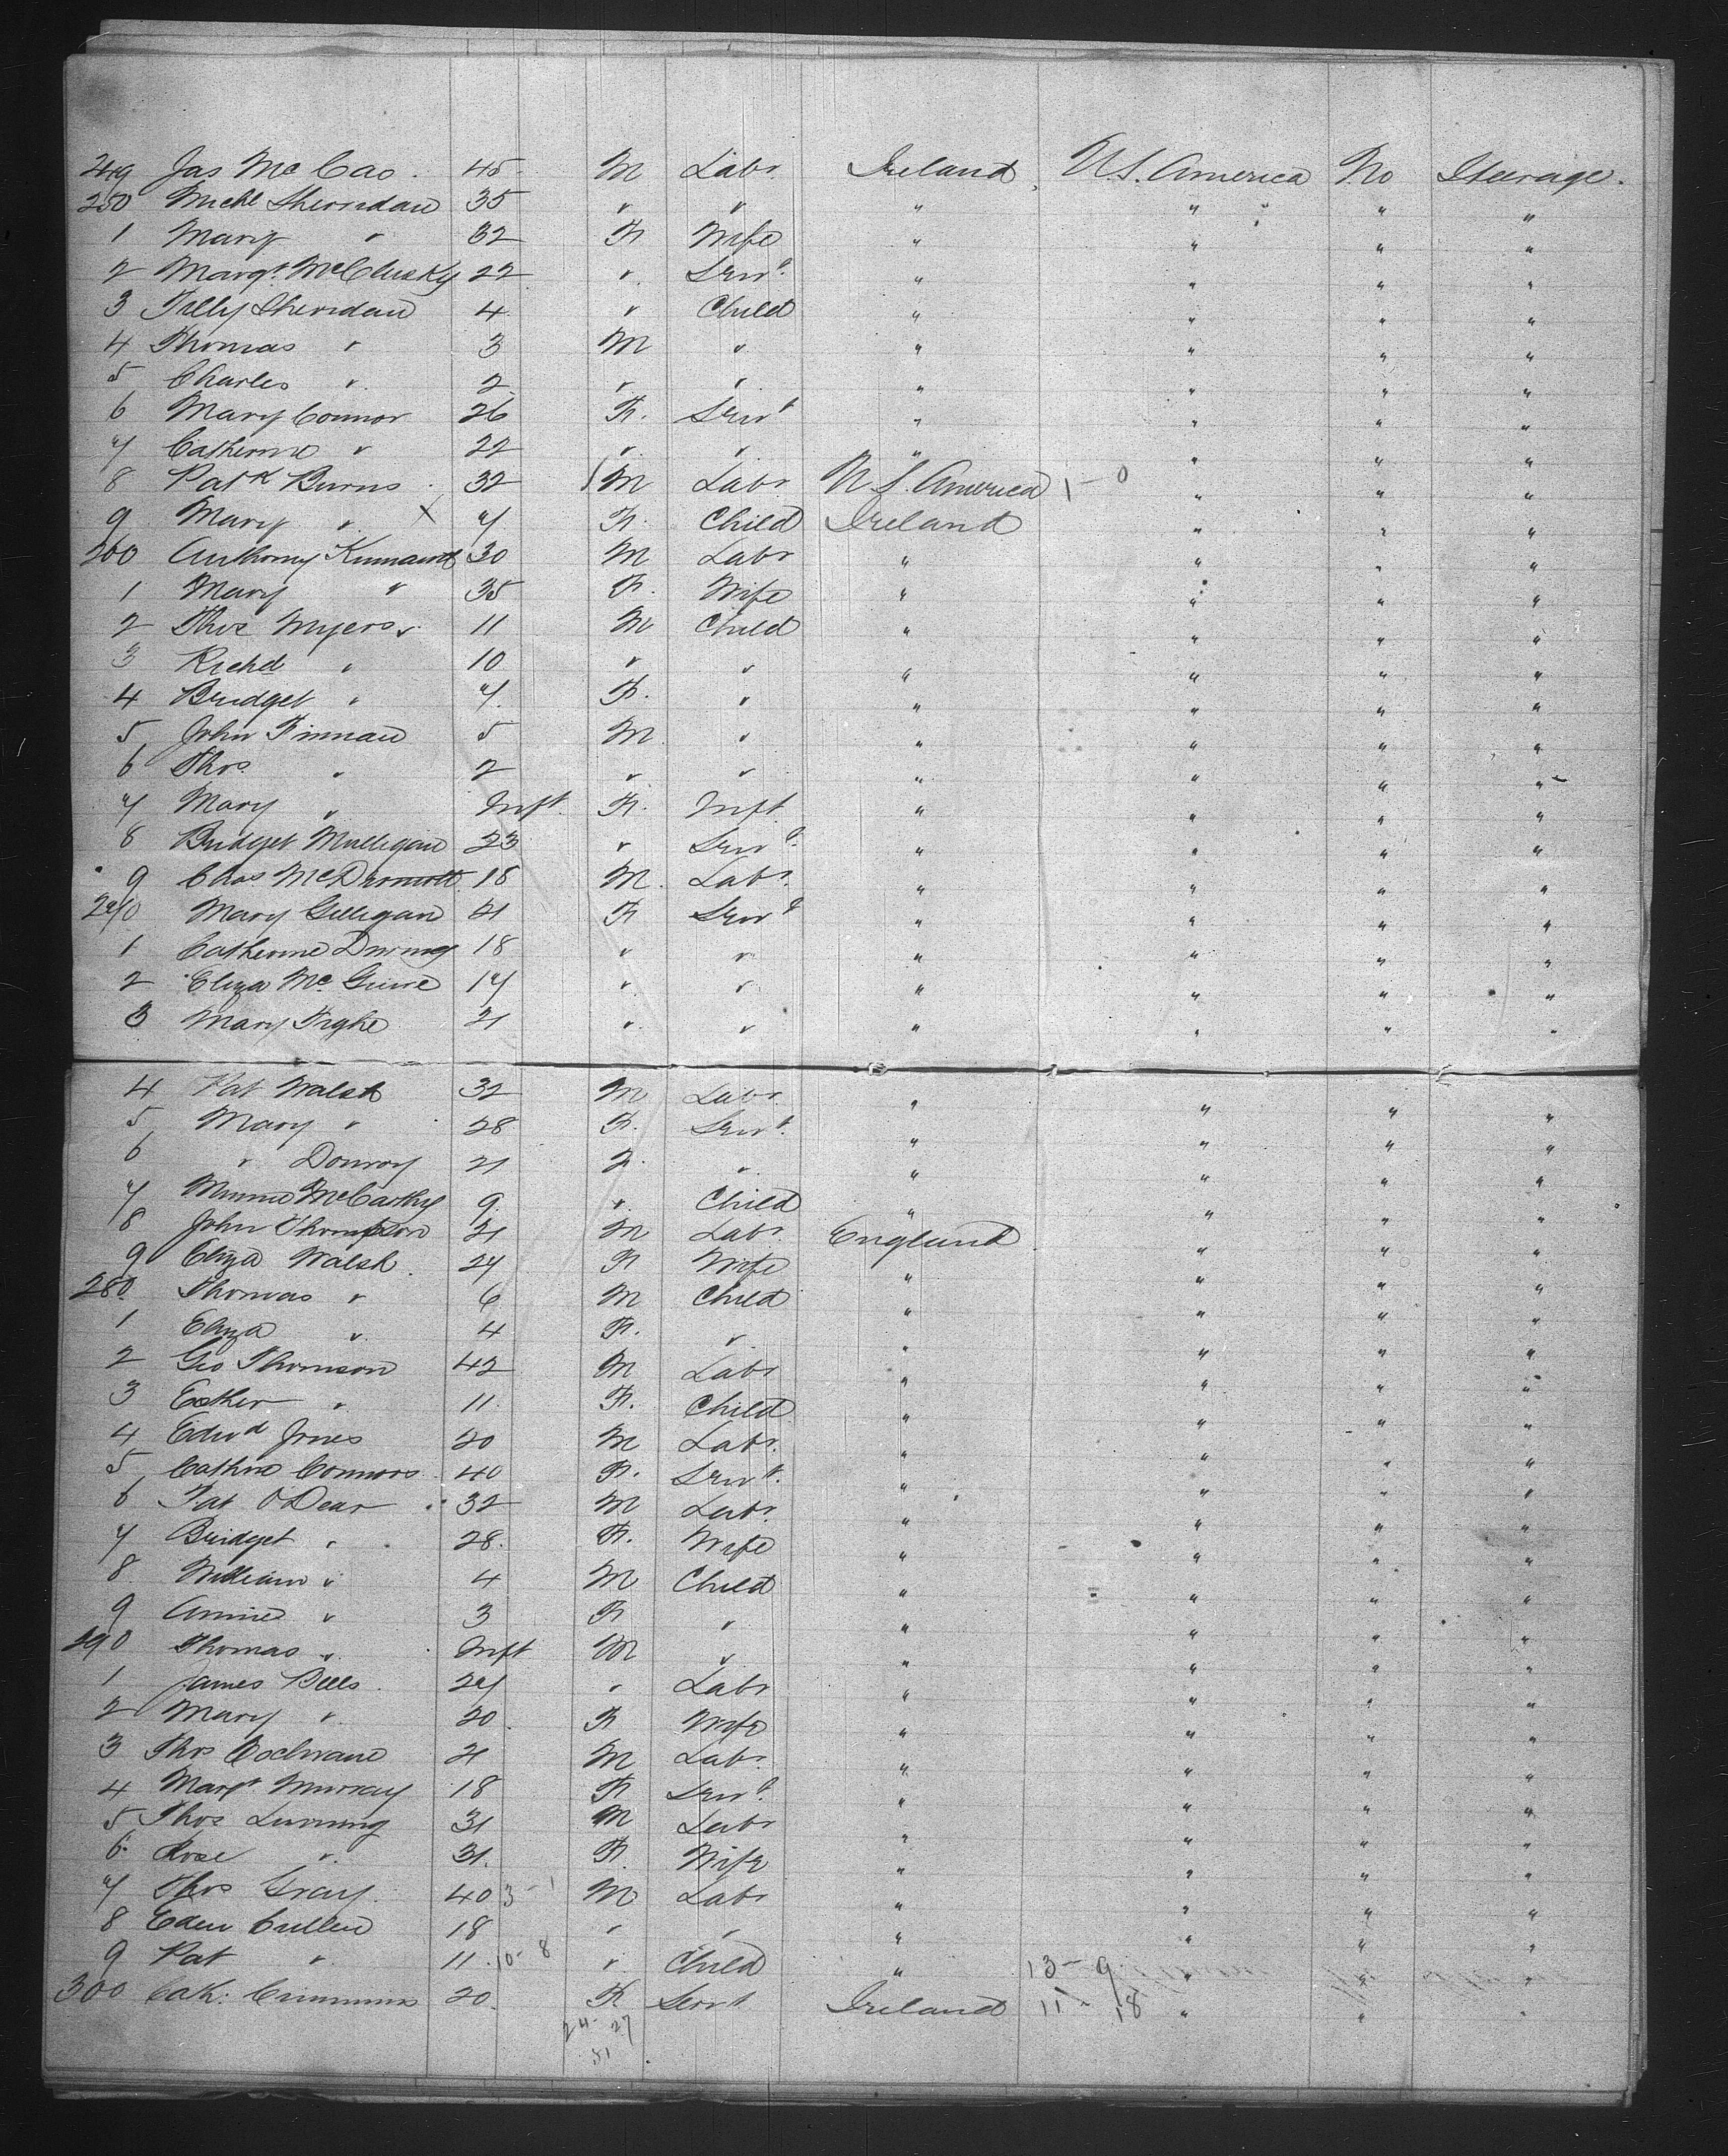 249 Jas McCao. 45 M Labr Ireland U.S. America No Steerage.
250 Michl Sheridan 35 " " " " " "
1 Mary " 32 F Wife " " " "
2 Margt. McClusky 22 " Servt. " " " "
3 Tilly Sheridan 4 " Child " " " "
4 Thomas " 3 M " " " " "
5 Charles " 2 " " " " " "
6 Mary Connor 26 F. Servt " " " "
7 Catherine " 22 " " " " " "
8 Patk Burns 32 M Labr U.S. America 1-0 " " "
9 Mary " X 7 F. Child Ireland " " "
260 Anthony 30 M Labr " " " "
1 Mary " 35 F. Wife " " " "
2 Thos Myers 11 M Child " " " "
3 Richd " 10 " " " " " "
4 Bridget " 7 F. " " " " "
5 John Finnan 5 M " " " " "
6 Thos " 2 " " " " " "
7 Mary " Inft. F. Inft. " " " "
8 Bridget Mulligan 23 " Servt. " " " "
9 Chas McDermott 18 M. Labr. " " " "
270 Mary Gilligan 21 F Servt " " " "
1 Catherine 18 " " " " " "
2 Eliza McGuire 17 " " " " " "
3 Mary Tighe 21 " " " " " "
4 Pat Walsh 32 M Labr. " " " "
5 Mary " 28 F. Servt. " " " "
6 " Donroy 21 F. " " " " "
7 Minnie McCarthy 9 " Child " " " "
8 John Thompson 21 M Labr. England " " "
9 Eliza Walsh 27 F Wife " " " "
280 Thomas " 6 M Child " " " "
1 Eliza " 4 F. " " " " "
2 Geo Thomson 42 M Labr " " " "
3 Esther " 11 F. Child " " " "
4 Edwd Jones 20 M Labr. " " " "
5 Cathne Connors 40 F. Servt. " " " "
6 Pat O'Dear 32 M Labr. " " " "
7 Bridget " 28. F. Wife " " " "
8 William " 4 M Child " " " "
9 Annie " 3 F " " " " "
290 Thomas " Inft M " " " " "
1 James Bells 27 " Labr " " " "
2 Mary " 20 F Wife " " " "
3 Thos Cochrane 21 M Labr. " " " "
4 Margt. Murray 18 F Servt. " " " "
5 Thos Lunning 31 M Labr " " " "
6 Rose " 31. F. Wife " " " "
7 Thos Gray 40 3-1 M Labr " " " "
8 Eden Cullen 18 " " " " " "
9 Pat " 11. 10-8 " Child " 13-9 " " "
300 Cath: Crimmins 20. F Servt Ireland 11-18 " " "
24-27
51